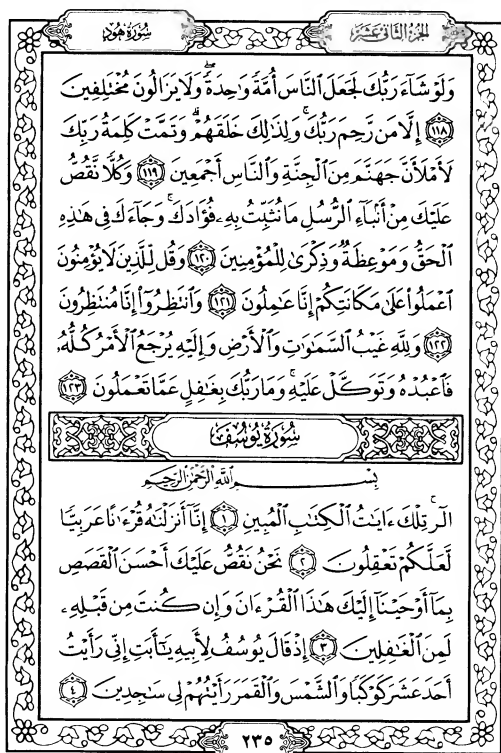 سُورَةُ هُودٍ
الجُزْءُ الثَّانِي عَشَرَ
وَلَوْ شَآءَ رَبُّكَ لَجَعَلَ ٱلنَّاسَ أُمَّةً وَٰحِدَةً ۖ وَلَا يَزَالُونَ مُخْتَلِفِينَ
﴿١١٨﴾ إِلَّا مَن رَّحِمَ رَبُّكَ ۚ وَلِذَٰلِكَ خَلَقَهُمْ ۗ وَتَمَّتْ كَلِمَةُ رَبِّكَ
لَأَمْلَأَنَّ جَهَنَّمَ مِنَ ٱلْجِنَّةِ وَٱلنَّاسِ أَجْمَعِينَ ﴿١١٩﴾ وَكُلًّا نَّقُصُّ
عَلَيْكَ مِنْ أَنۢبَآءِ ٱلرُّسُلِ مَا نُثَبِّتُ بِهِۦ فُؤَادَكَ ۚ وَجَآءَكَ فِى هَٰذِهِ
ٱلْحَقُّ وَمَوْعِظَةٌ وَذِكْرَىٰ لِلْمُؤْمِنِينَ ﴿١٢٠﴾ وَقُل لِّلَّذِينَ لَا يُؤْمِنُونَ
ٱعْمَلُوا۟ عَلَىٰ مَكَانَتِكُمْ إِنَّا عَٰمِلُونَ ﴿١٢١﴾ وَٱنتَظِرُوٓا۟ إِنَّا مُنتَظِرُونَ
﴿١٢٢﴾ وَلِلَّهِ غَيْبُ ٱلسَّمَٰوَٰتِ وَٱلْأَرْضِ وَإِلَيْهِ يُرْجَعُ ٱلْأَمْرُ كُلُّهُۥ
فَٱعْبُدْهُ وَتَوَكَّلْ عَلَيْهِ ۚ وَمَا رَبُّكَ بِغَٰفِلٍ عَمَّا تَعْمَلُونَ ﴿١٢٣﴾
سُورَةُ يُوسُفَ
بِسْمِ ٱللَّهِ ٱلرَّحْمَٰنِ ٱلرَّحِيمِ
الٓر ۚ تِلْكَ ءَايَٰتُ ٱلْكِتَٰبِ ٱلْمُبِينِ ﴿١﴾ إِنَّآ أَنزَلْنَٰهُ قُرْءَٰنًا عَرَبِيًّا
لَّعَلَّكُمْ تَعْقِلُونَ ﴿٢﴾ نَحْنُ نَقُصُّ عَلَيْكَ أَحْسَنَ ٱلْقَصَصِ
بِمَآ أَوْحَيْنَآ إِلَيْكَ هَٰذَا ٱلْقُرْءَانَ وَإِن كُنتَ مِن قَبْلِهِۦ
لَمِنَ ٱلْغَٰفِلِينَ ﴿٣﴾ إِذْ قَالَ يُوسُفُ لِأَبِيهِ يَٰٓأَبَتِ إِنِّى رَأَيْتُ
أَحَدَ عَشَرَ كَوْكَبًا وَٱلشَّمْسَ وَٱلْقَمَرَ رَأَيْتُهُمْ لِى سَٰجِدِينَ ﴿٤﴾
٢٣٥